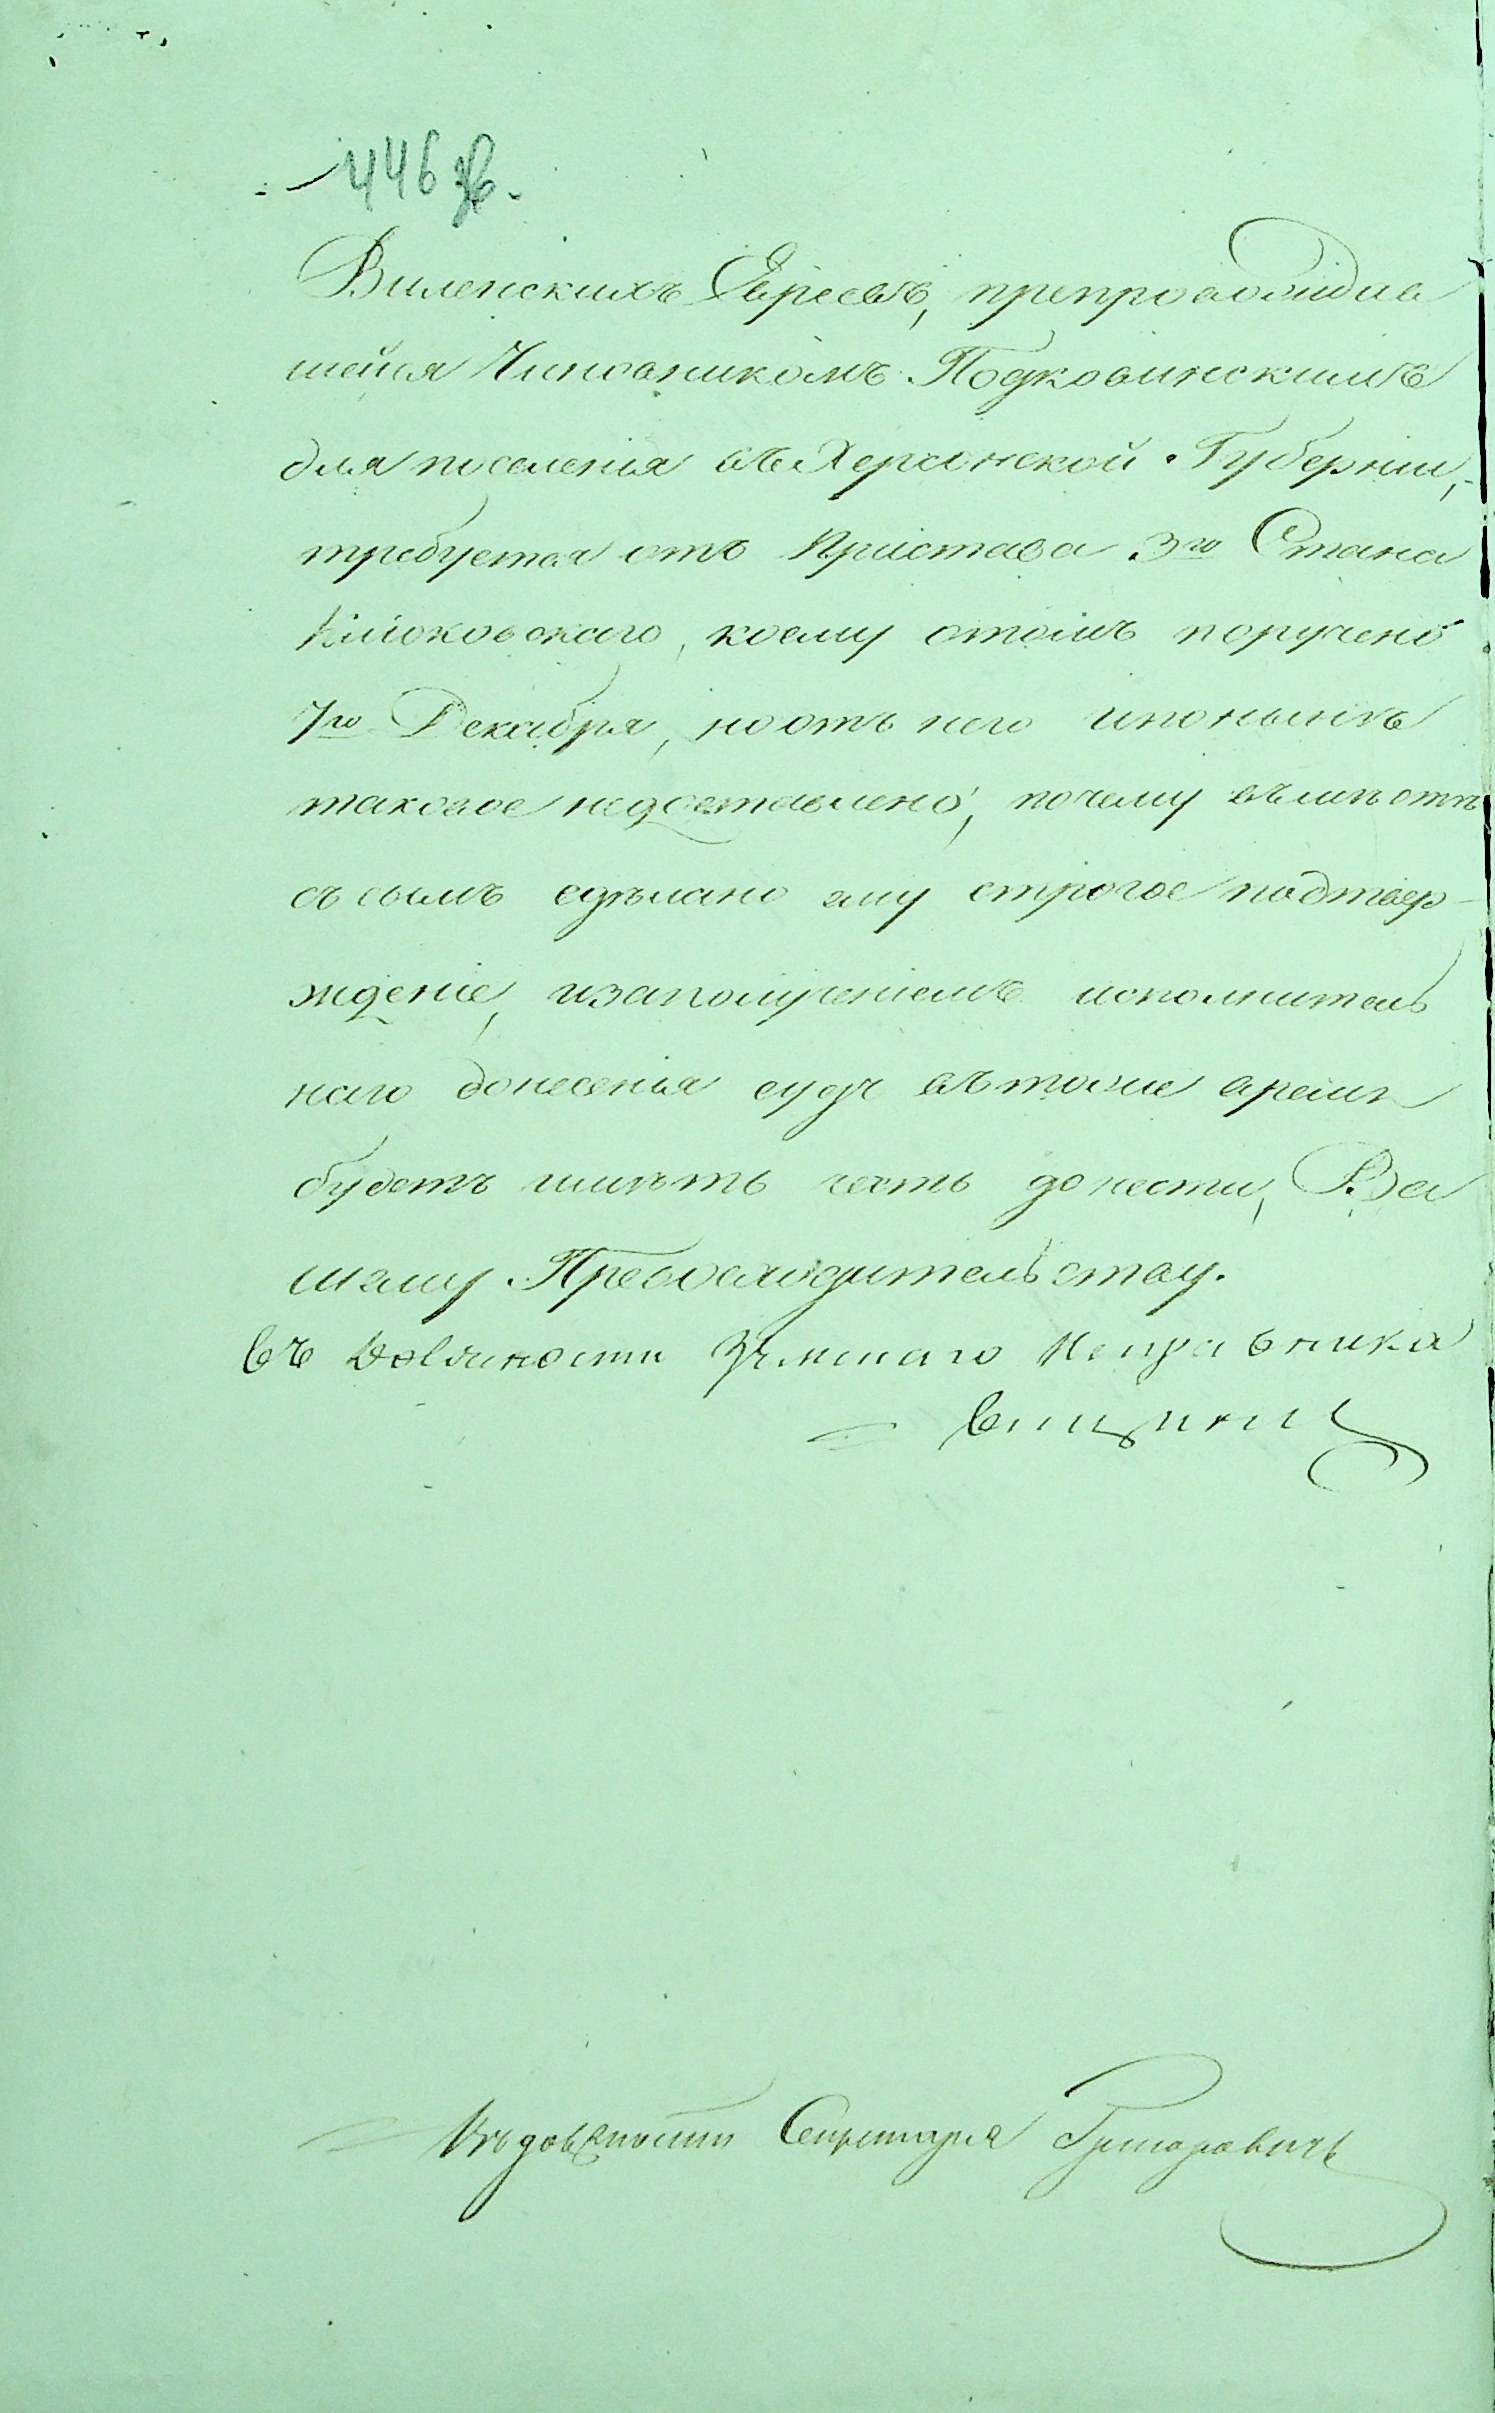 446 об.
Виленскихъ Евреевъ, препровождав
шейся Чиновникомъ Подковинскимъ
для поселенія въ Херсонской Губерніи,
требуется отъ Пристава 3го Стана
коему отомъ поручено
7го Декабря, но отъ него ипонынѣ
таковое недоставлено, почему вѣлиѣстѣ
съ симъ сдѣлано ему строгое подтвер-
жденіе, изаполученіемъ исполнитель
наго донесенія судъ въ тоже время
будетъ имѣть честь донести, Ва
шему Превосходительству.
Въ должности Земскаго Исправника
Въ должности Секретаря Григоровичь